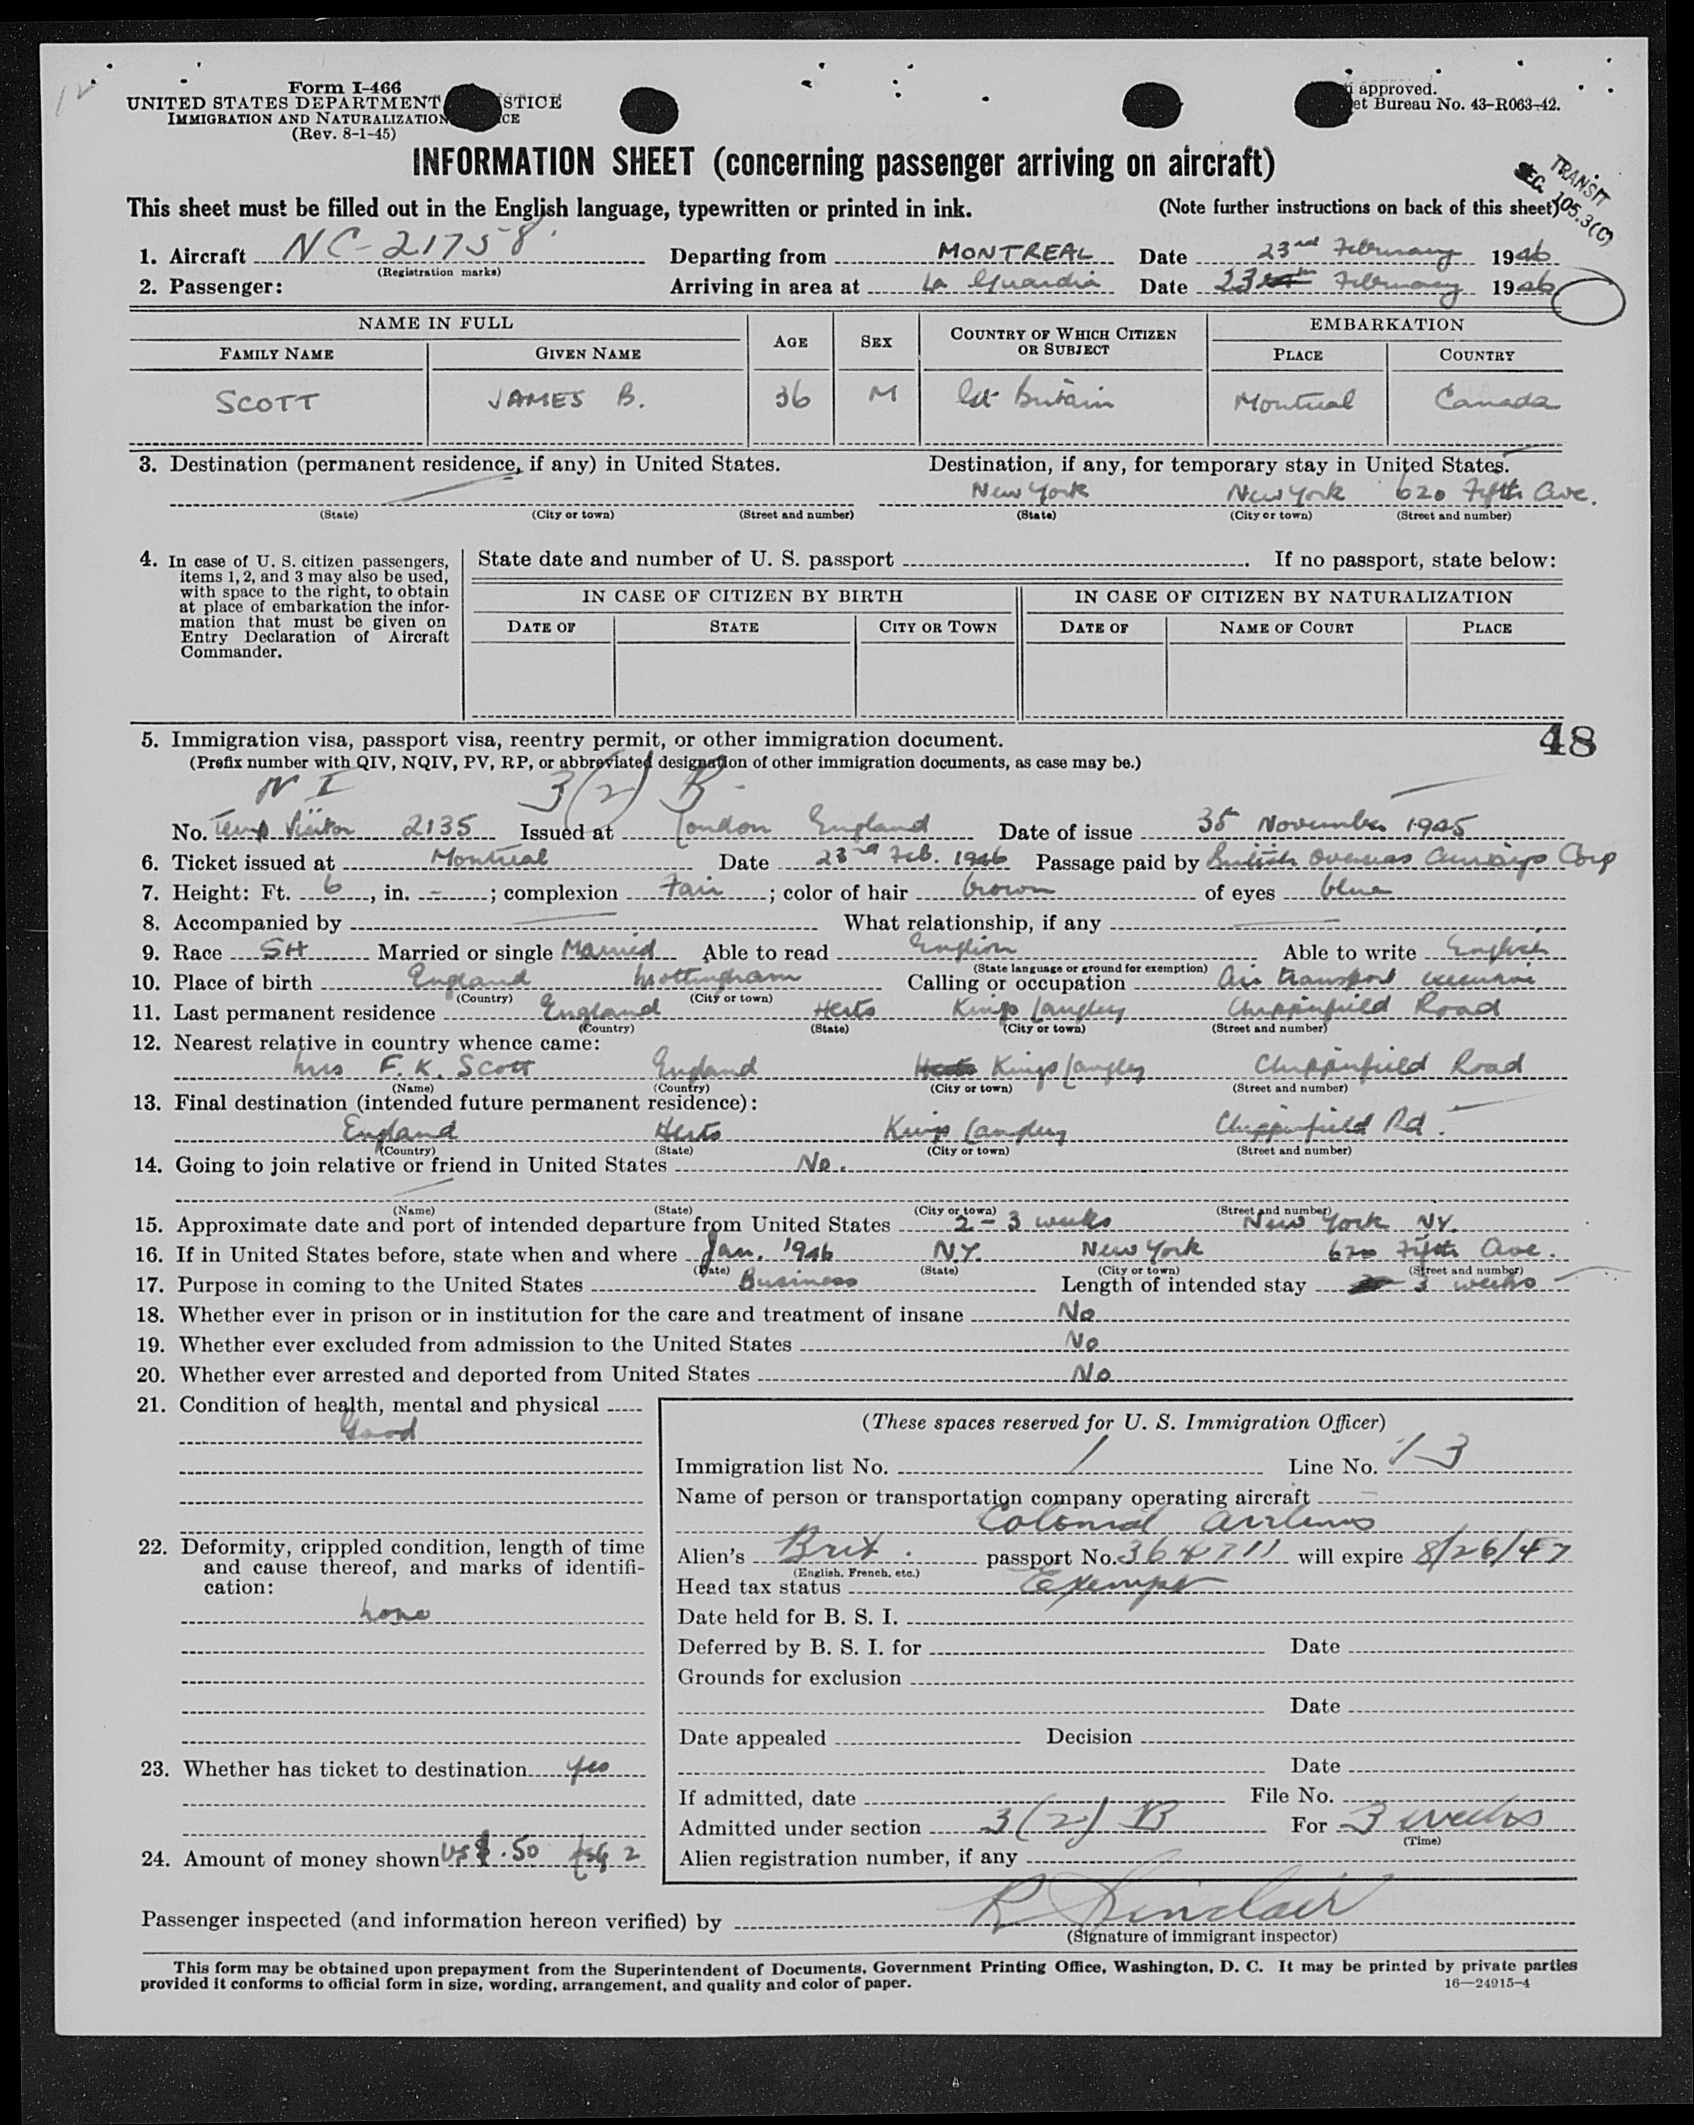 Form I-466
UNITED STATES DEPARTMENT STICE
IMMIGRATION AND NATURALIZATION CE
(Rev. 8-1-45)
approved.
et Bureau No. 43-R063-42.
INFORMATION SHEET (concerning passenger arriving on aircraft)
TRANSIT
SEC. 105.3(C)
This sheet must be filled out in the English language, typewritten or printed in ink. (Note further instructions on back of this sheet)
1. Aircraft NC-21758 Departing from MONTREAL Date 23rd February 1946
(Registration marks)
2. Passenger: Arriving in area at La Guardia Date 23 February 1946
NAME IN FULL AGE SEX COUNTRY OF WHICH CITIZEN OR SUBJECT EMBARKATION
FAMILY NAME GIVEN NAME PLACE COUNTRY
SCOTT JAMES B. 36 M Gt Britain Montreal Canada
3. Destination (permanent residence, if any) in United States. Destination, if any, for temporary stay in United States.
New York New York 620 Fifth Ave.
(State) (City or town) (Street and number) (State) (City or town) (Street and number)
4. In case of U. S. citizen passengers, items 1, 2, and 3 may also be used, with space to the right, to obtain at place of embarkation the information that must be given on Entry Declaration of Aircraft Commander.
State date and number of U. S. passport . If no passport, state below:
IN CASE OF CITIZEN BY BIRTH IN CASE OF CITIZEN BY NATURALIZATION
DATE OF STATE CITY OR TOWN DATE OF NAME OF COURT PLACE
48
5. Immigration visa, passport visa, reentry permit, or other immigration document.
(Prefix number with QIV, NQIV, PV, RP, or abbreviated designation of other immigration documents, as case may be.)
N I 3(2) B
No. Temp Visitor 2135 Issued at London England Date of issue November 1945
6. Ticket issued at Montreal Date 23rd Feb. 1946 Passage paid by British Overseas Airways Corp
7. Height: Ft. 6, in. -; complexion Fair; color of hair brown of eyes blue
8. Accompanied by What relationship, if any
9. Race SH Married or single Married Able to read English Able to write English
(State language or ground for exemption)
10. Place of birth England Nottingham Calling or occupation Air transport executive
(Country) (City or town)
11. Last permanent residence England Herts Kings Langley Chipperfield Road
(Country) (State) (City or town) (Street and number)
12. Nearest relative in country whence came:
Mrs F. K. Scott England Kings Langley Chipperfield Road
(Name) (Country) (City or town) (Street and number)
13. Final destination (intended future permanent residence):
England Herts Kings Langley Chipperfield Rd.
(Country) (State) (City or town) (Street and number)
14. Going to join relative or friend in United States No.
(Name) (State) (City or town) (Street and number)
15. Approximate date and port of intended departure from United States 2-3 weeks New York NY.
16. If in United States before, state when and where Jan. 1946 N.Y. New York 620 Fifth Ave.
(Date) (State) (City or town) (Street and number)
17. Purpose in coming to the United States Business Length of intended stay 3 weeks
18. Whether ever in prison or in institution for the care and treatment of insane No
19. Whether ever excluded from admission to the United States No
20. Whether ever arrested and deported from United States No
21. Condition of health, mental and physical
Good
22. Deformity, crippled condition, length of time and cause thereof, and marks of identification:
none
23. Whether has ticket to destination yes
24. Amount of money shown US $.50
(These spaces reserved for U. S. Immigration Officer)
Immigration list No. 1 Line No. 13
Name of person or transportation company operating aircraft
Colonial Airlines
Alien's Brit. passport No. 364711 will expire 8/26/47
(English, French, etc.)
Head tax status Exempt
Date held for B. S. I.
Deferred by B. S. I. for Date
Grounds for exclusion
Date
Date appealed Decision
Date
If admitted, date File No.
Admitted under section 3(2) B For 3 weeks
(Time)
Alien registration number, if any
Passenger inspected (and information hereon verified) by R Sinclair
(Signature of immigrant inspector)
This form may be obtained upon prepayment from the Superintendent of Documents, Government Printing Office, Washington, D. C. It may be printed by private parties
provided it conforms to official form in size, wording, arrangement, and quality and color of paper. 16—24915-4